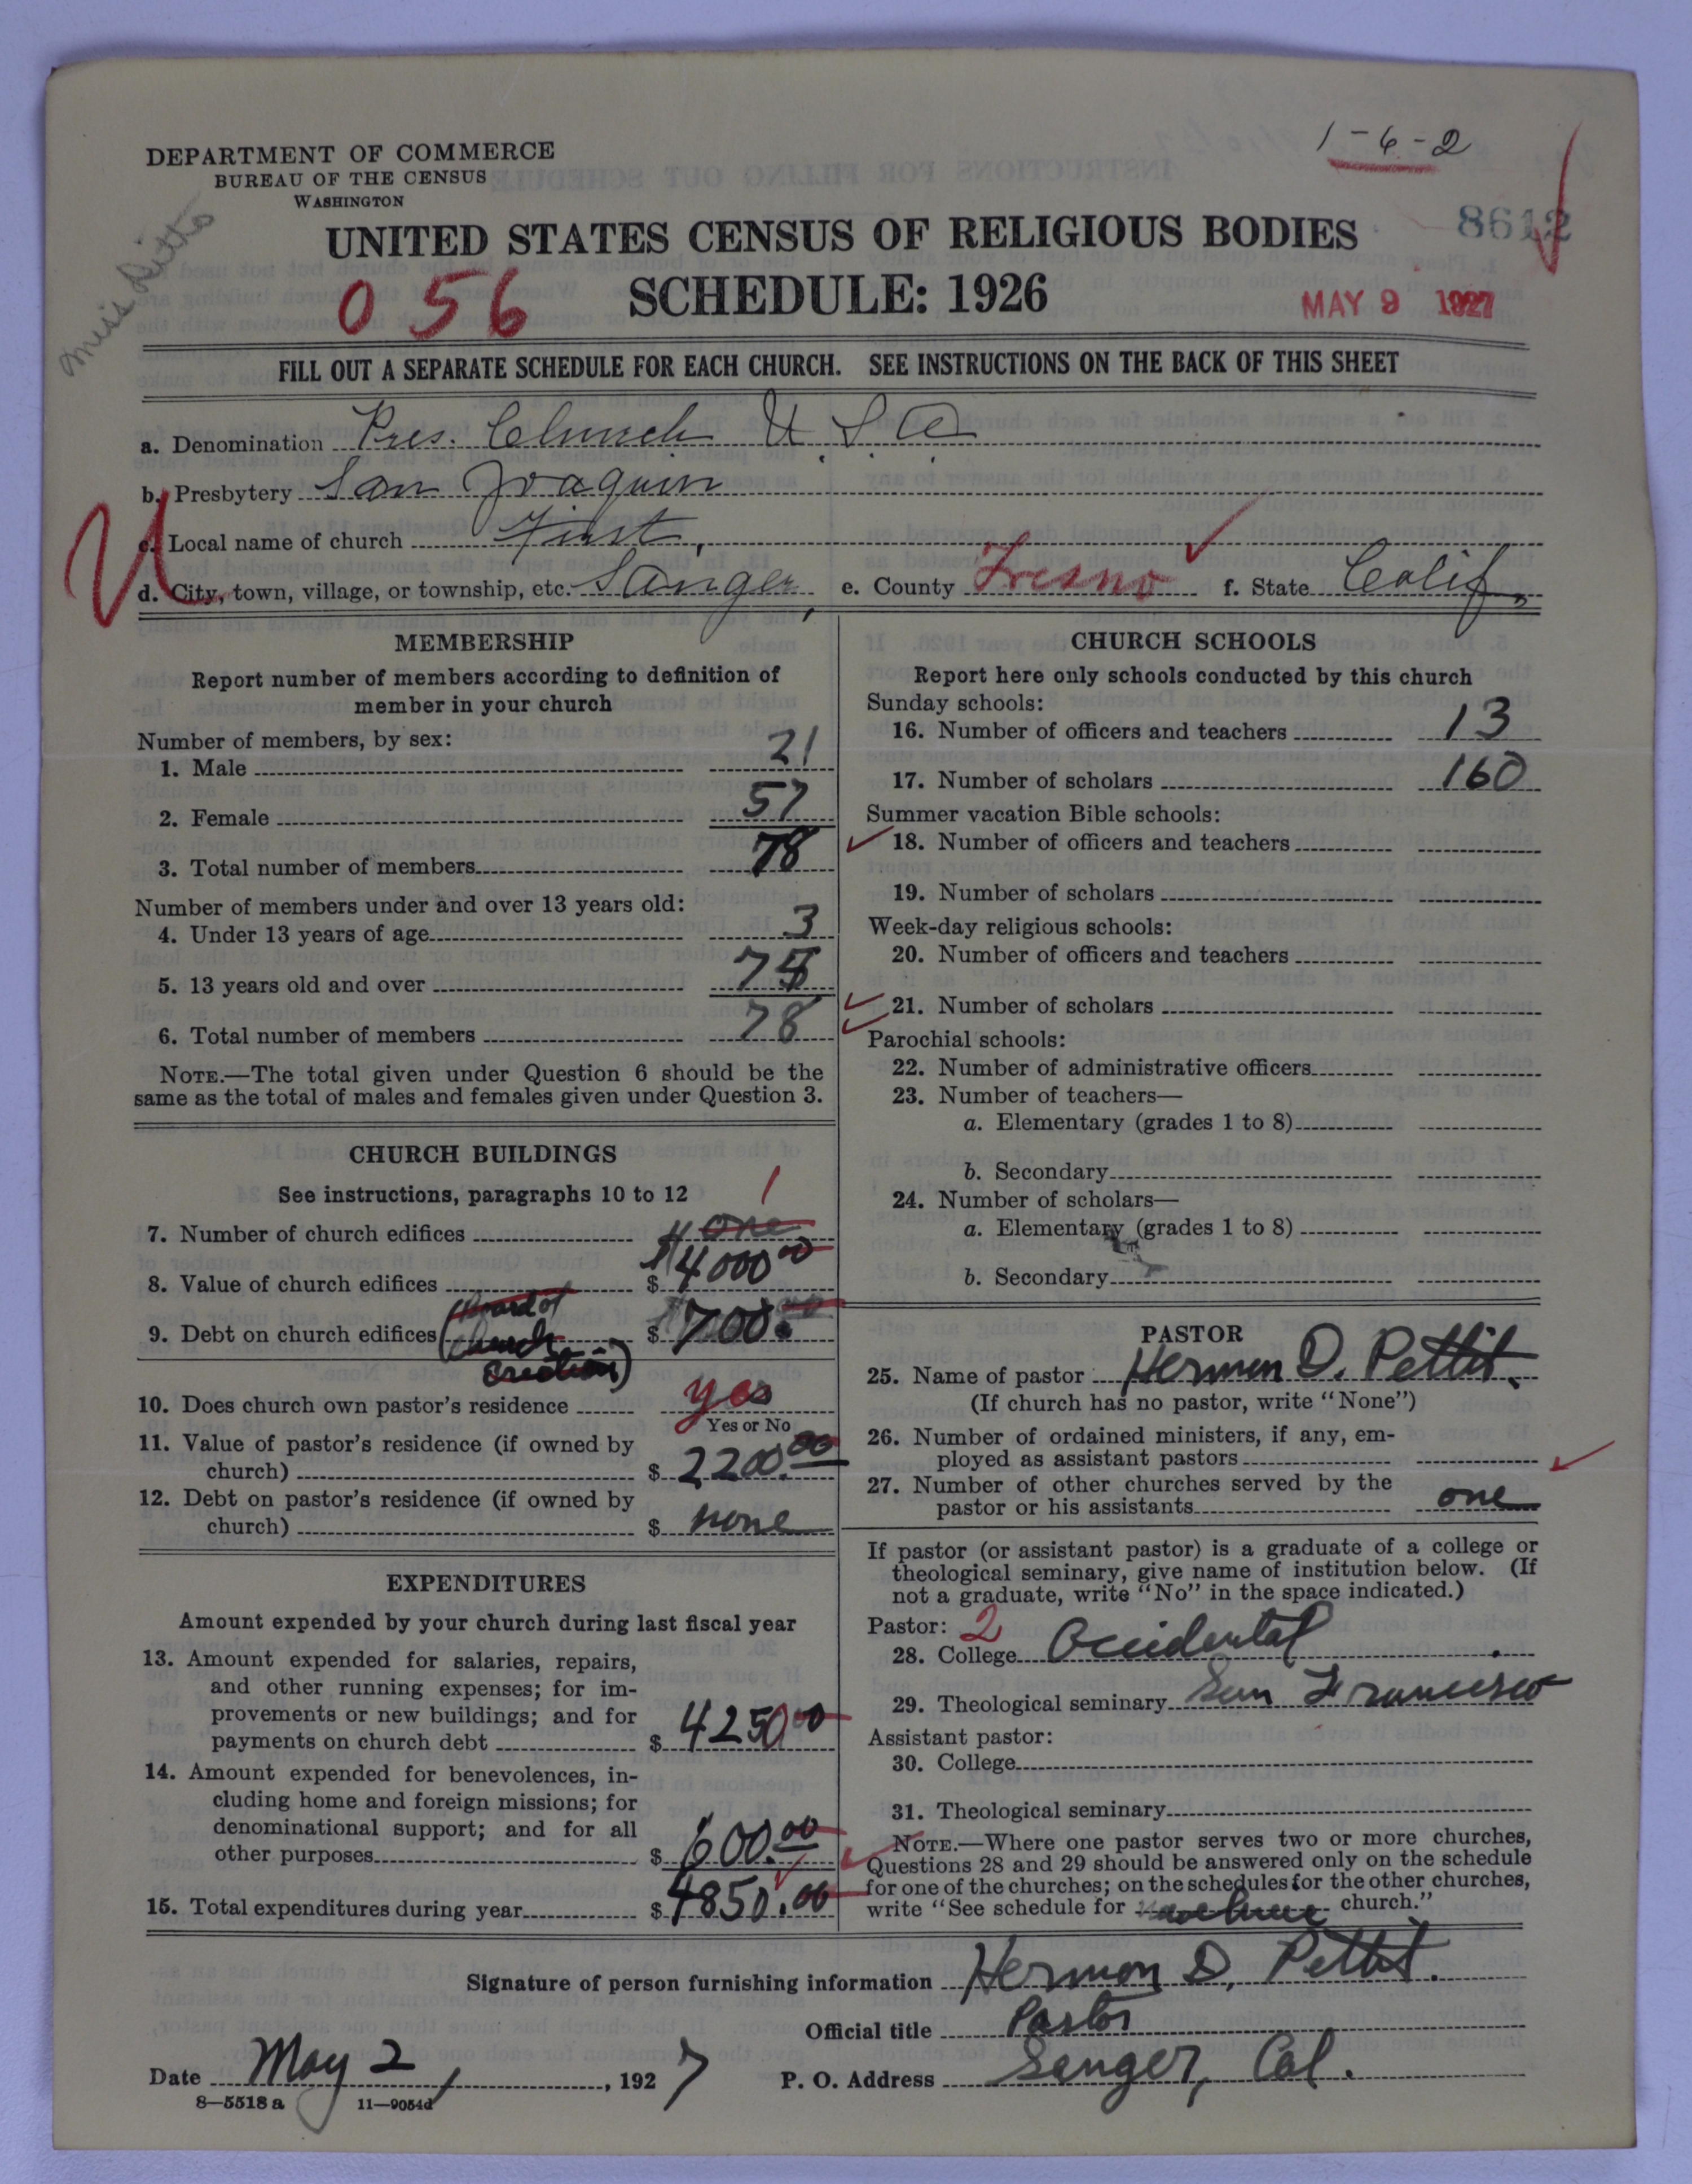 1-6-2
DEPARTMENT OF COMMERCE
BUREAU OF THE CENSUS
WASHINGTON
8612
UNITED STATES CENSUS OF RELIGIOUS BODIES
056 SCHEDULE: 1926
MAY 9 1927
Miss
FILL OUT A SEPARATE SCHEDULE FOR EACH CHURCH. SEE INSTRUCTIONS ON THE BACK OF THIS SHEET
a. Denomination Pres. Church U.S.A.
b. Presbytery San Joaquin
c. Local name of church First,
d. City, town, village, or township, etc. Sanger, e. County Fresno f. State Calif,
MEMBERSHIP
Report number of members according to definition of
member in your church
Number of members, by sex:
1. Male 21
2. Female 57
3. Total number of members 78
Number of members under and over 13 years old:
4. Under 13 years of age 3
5. 13 years old and over 75
6. Total number of members 78
NOTE.—The total given under Question 6 should be the
same as the total of males and females given under Question 3.
CHURCH BUILDINGS
See instructions, paragraphs 10 to 12
1
7. Number of church edifices one
8. Value of church edifices $ 4000.00
9. Debt on church edifices (Board of $ 700.00
Church
Erection)
10. Does church own pastor's residence yes
Yes or No
11. Value of pastor's residence (if owned by
church) $ 2200.00
12. Debt on pastor's residence (if owned by
church) $ none
EXPENDITURES
Amount expended by your church during last fiscal year
13. Amount expended for salaries, repairs,
and other running expenses; for im-
provements or new buildings; and for
payments on church debt $ 4250.00
14. Amount expended for benevolences, in-
cluding home and foreign missions; for
denominational support; and for all
other purposes $ 600.00
15. Total expenditures during year $ 4850.00
CHURCH SCHOOLS
Report here only schools conducted by this church
Sunday schools:
16. Number of officers and teachers 13
17. Number of scholars 160
Summer vacation Bible schools:
18. Number of officers and teachers
19. Number of scholars
Week-day religious schools:
20. Number of officers and teachers
21. Number of scholars
Parochial schools:
22. Number of administrative officers
23. Number of teachers—
a. Elementary (grades 1 to 8)
b. Secondary
24. Number of scholars—
a. Elementary (grades 1 to 8)
b. Secondary
PASTOR
25. Name of pastor Hermon D. Pettit.
(If church has no pastor, write "None")
26. Number of ordained ministers, if any, em-
ployed as assistant pastors
27. Number of other churches served by the
pastor or his assistants one
If pastor (or assistant pastor) is a graduate of a college or
theological seminary, give name of institution below. (If
not a graduate, write "No" in the space indicated.)
Pastor: 2
28. College Occidental
29. Theological seminary San Francisco
Assistant pastor:
30. College
31. Theological seminary
NOTE.—Where one pastor serves two or more churches,
Questions 28 and 29 should be answered only on the schedule
for one of the churches; on the schedules for the other churches,
write "See schedule for church."
Signature of person furnishing information Hermon D. Pettit.
Official title Pastor
Date May 2, 1927 P. O. Address Sanger, Cal.
8—5518 a 11—9054d